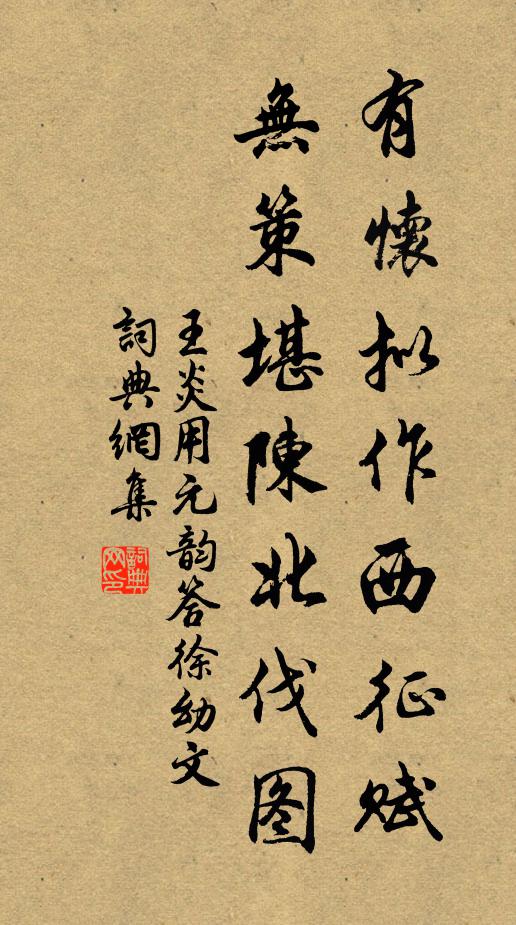 有懷拟作西征赋
無策堪陳北伐图
王炎用元韵答徐幼文
詞典網集
詞典
网印